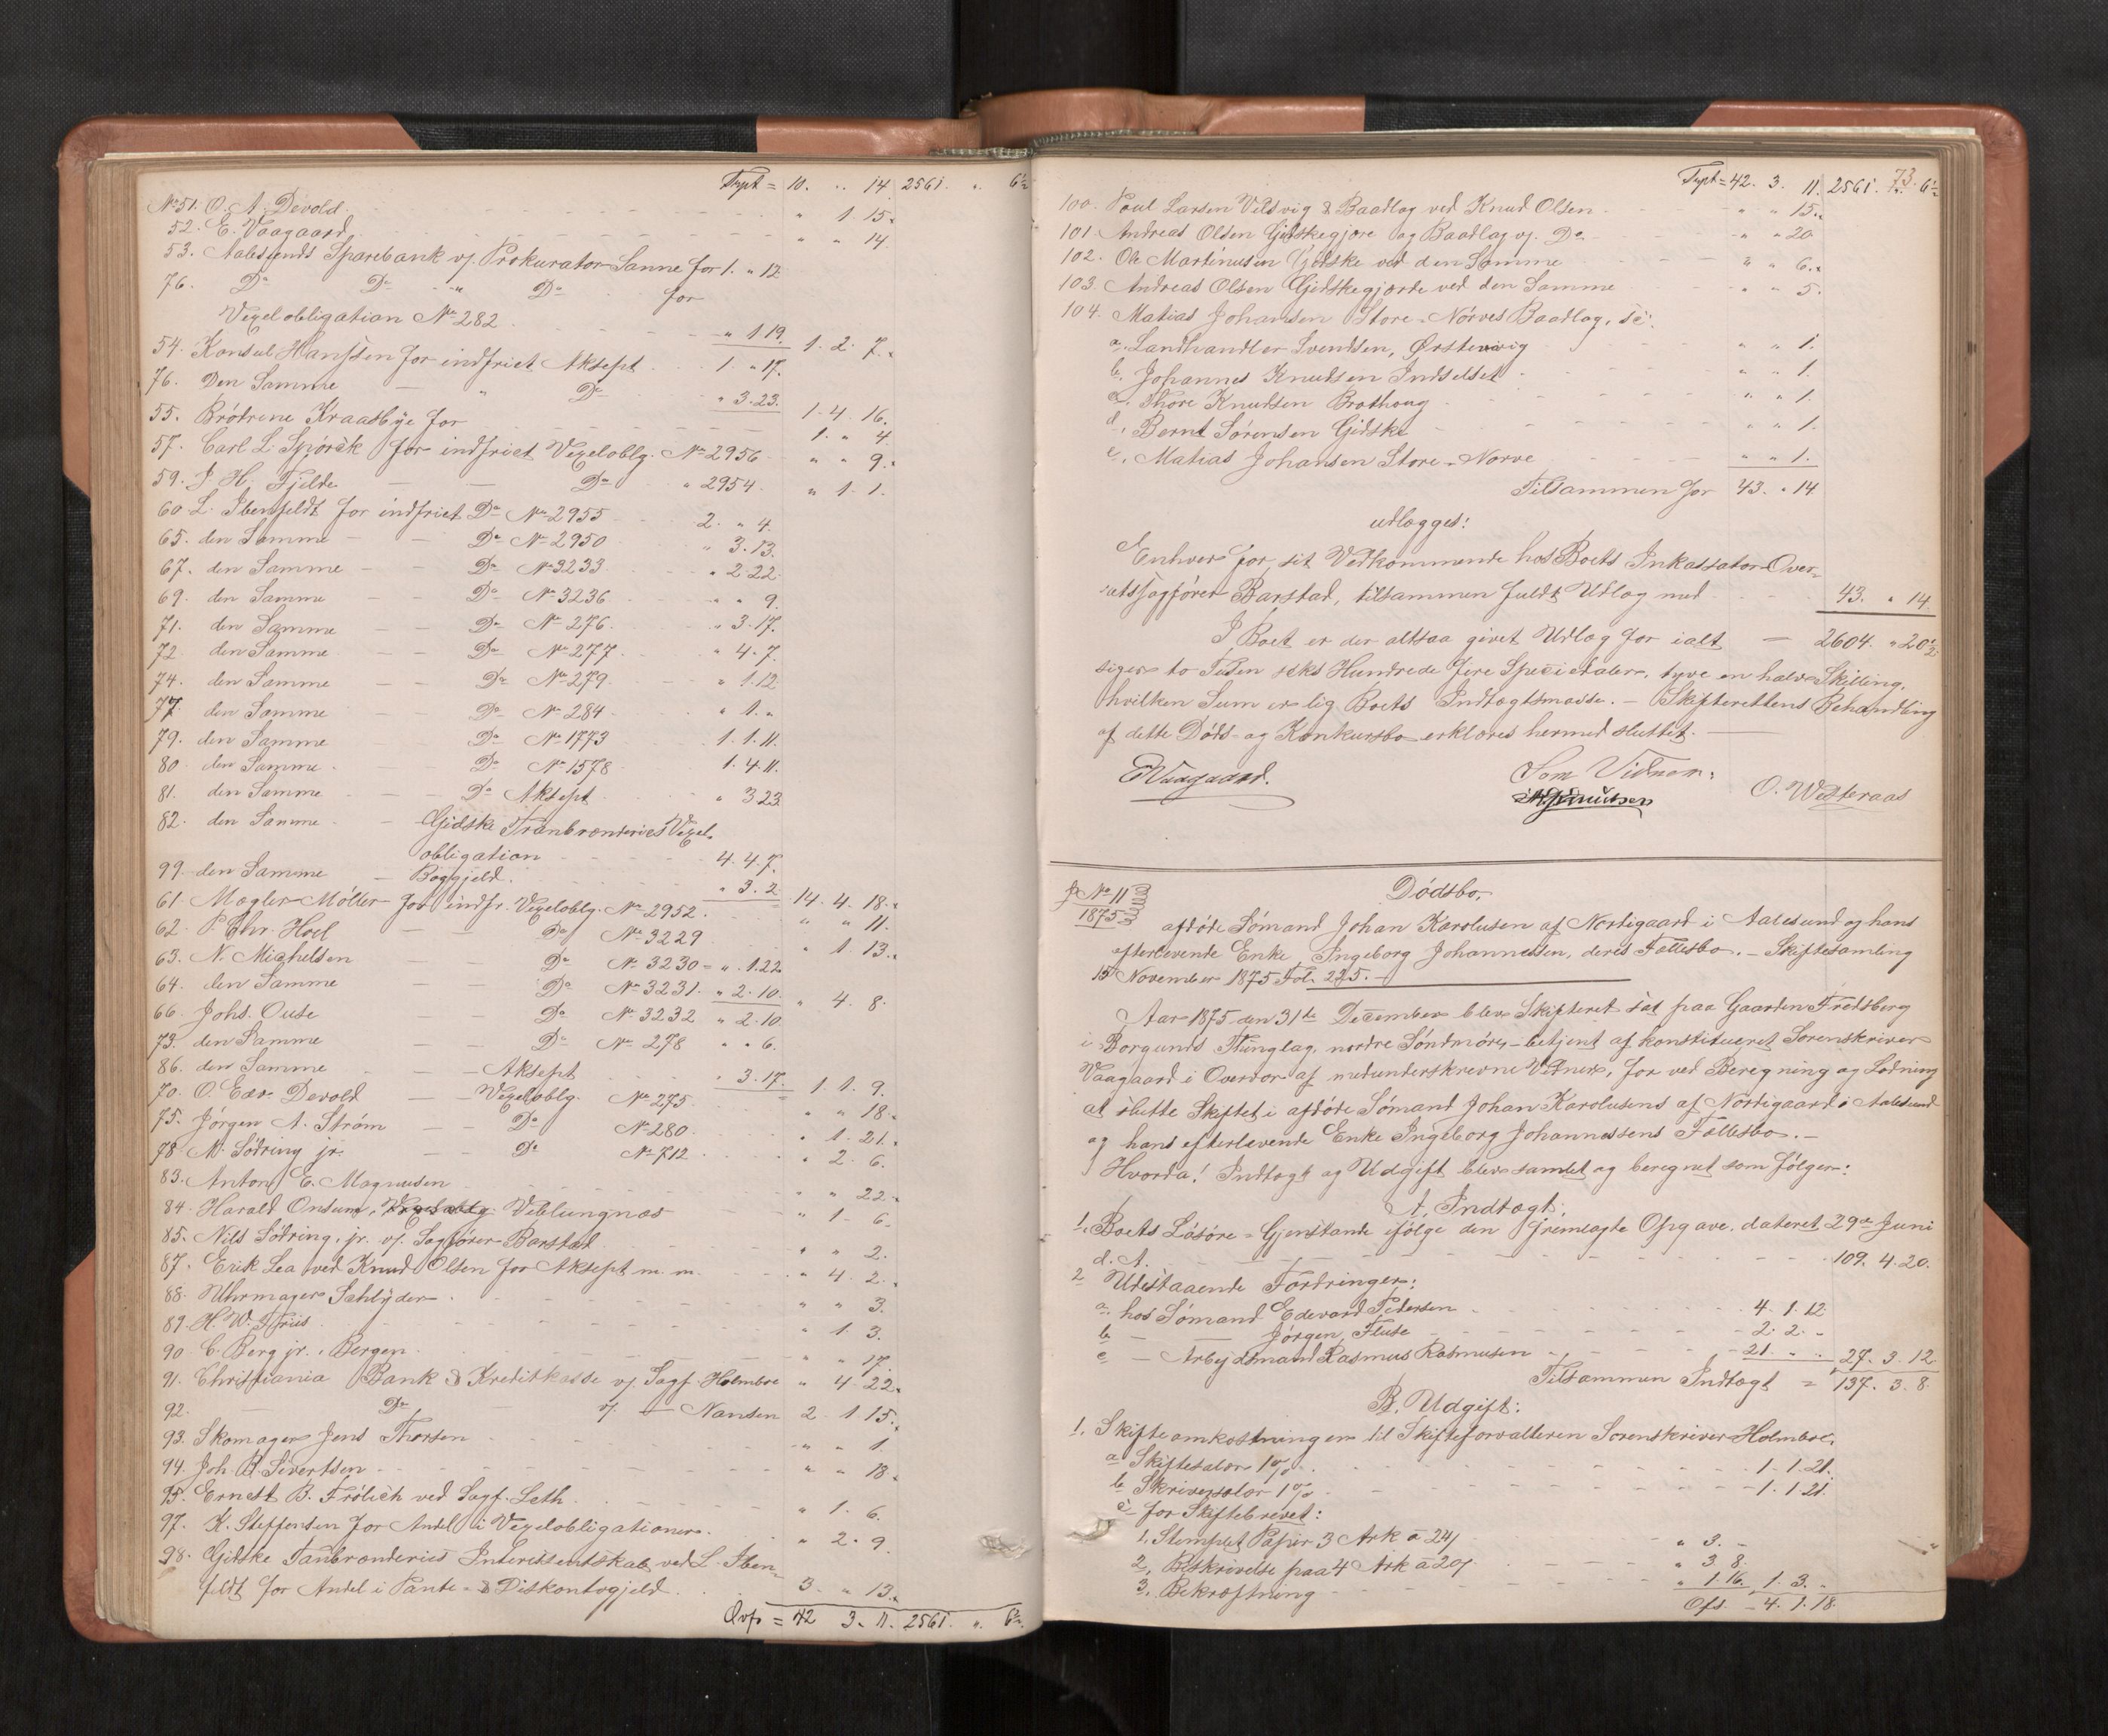 Tspt = 10. " 14 2561. ". 6½
No 51. O. A. Devold. " 1. 15.
52. E. Vaagaard " " 14.
53. Aalesunds Sparebank v/. Prokurator Sanne for 1. " 12
76. Do Do " Do for
Vexelobligation No 282 " 1 19. 1. 2. 7.
54. Konsul Hanssen for indfriet Aksept 1. " 17.
76. Den Samme — " Do " 3. 23. 1. 4. 16.
55. Brødrene Kraasbye for 1. " 4.
57. Carl L. Spjørck for indfriet Vexeloblg. No 2956 " " 9.
59. P. H. Fjelde — — Do " 2954. " 1. 1.
60 L. Ibenfeldt for indfriet Do No 2955 2. " 4.
65. den Samme — — Do No 2950 " 3. 13.
67. den Samme — — Do No 3233 " 2. 22.
69. den Samme — — Do No 3236 " " 9.
71. den Samme — — Do No 276. " 3. 17.
72 den Samme — — Do No 277. " 4. 7.
74. den Samme — — Do No 279. " 1. 12
77. den Samme — — Do No 284. " 1. "
79. den Samme — — Do No 1773 1. 1. 11.
80. den Samme — — Do No 1578 1. 4. 11.
81. den Samme — — Do Aksept " 3 23
82. den Samme — Gidske Tranbrænderies Vexel-
obligation 4. 4. 7.
99. den Samme — Boggjeld. " 3. 2 14. 4. 18.
61. Mægler Møller for indfr. Vexeloblg. No 2952. " " 11.
62. P. Chr. Hoel — Do No 3229 " 1. 13.
63. N. Michelsen — Do No 3230 = ". 1. 22
64. den Samme — Do No 3231. " 2. 10. " 4. 8.
66. Johs. Ouse — — Do No 3232 " 2. 10
73. den Samme — — Do No 278 " " 6.
86. den Samme — Aksept " 3. 17. 1. 1. 9.
70. O. Edv. Devold — Vexeloblg. No 275 " " 18.
75. Jørgen A. Strøm — — Do No 280. " 1. 21.
78 N. Sødring jr. — — Do No 712 " 2. 6.
83. Anton E. Magnussen " " 22.
84. Harald Onsum, Vexeloblg. Veblungnæs " 1. 6.
85. Nils Sødring, jr. v/. Sagfører Barstad " " 2.
87. Erik Lea ved Knud Olsen for Aksept m. m. " 4. 2.
88. Uhrmager Schlyder " " 3.
89. H. W. Friis " 1. 3.
90. C. Berg jr. i Bergen. " " 17.
91. Christiania Bank & Kreditkasse v/. Sagf. Holmboe " 4 22.
92. — Do — v/. — Nansen 2. 1. 15.
93. Skomager Jens Thorsen " " 1.
94. Joh B. Sivertsen " " 18.
95. Ernst B. Frølich ved Sagf. Leth. " 1. 6.
97. K. Steffensen for Andel i Vexelobligationer. " 2. 9.
98. Gidske Tanbrænderies Interessentskab ved L. Iben-
feldt for Andel i Pante- & Diskontogjeld. 3. " 13.
Ovf. = 42 3. 11. 2561. ". 6½.
73.
Tspt = 42. 3. 11. 2561. ". 6½
100. Poul Larsen Vedsvig & Baadlag ved Knud Olsen " " 15.
101. Andreas Olsen Gidskegjøre og Baadlag v/. Do " " 20
102. Ole Martinusen Gidske ved den Samme " " 6.
103. Andreas Olsen Gidskegjærde ved den Samme " " 5.
104. Matias Johansen Store-Nørves Baadlag, sc:
a. Landhandler Svendsen, Ørstenvig " " 1.
b. Johannes Knudsen Indselset " " 1.
c. Thore Knudsen Brathoug " " 1.
d. Bernt Sørensen Gidske " " 1.
e. Matias Johansen Store-Nørve " " 1.
Tilsammen for 43. " 14
udlægges:
Enhver for sit Vedkommende hos Boets Inkassator Over-
retssagfører Barstad, tilsammen fuldt Udlæg med 43. " 14.
I Boet er der altsaa givet Udlæg for ialt — 2604. " 20½.
siger to Tusen seks Hundrede fire Speciedaler, tyve en halv Skilling,
hvilken Sum er lig Boets Indtægtsmasse. — Skifterettens Behandling
af dette Døds- og Konkursbo erklæres hermed sluttet. —
E Vaagaard. Som Vidner: O. Westeraas
A. Knutsen
J No 11
1875
Dødsbo.
afdøde Sømand Johan Karolusen af Nørdigaard i Aalesund og hans
efterlevende Enke, Ingeborg Johannessen, deres Fællesbo. — Skiftesamling
15 November 1875 Fol. 225. —
Aar 1875 den 31te December blev Skifteret sat paa Gaarden Fredsberg
i Borgunds Thinglag, nordre Søndmøre — betjent af konstitueret Sorenskriver
Vaagaard i Overvær af medunderskrevne Vidner, for ved Beregning og Lodning
at slutte Skiftet i afdøde Sømand Johan Karolusens af Nørdigaard i Aalesund
og hans efterlevende Enke Ingeborg Johannessens Fællesbo. —
Hvorda! Indtægt og Udgift blev samlet og beregnet som følger:
A. Indtægt:
1. Boets Løsøre-Gjenstande ifølge den fremlagte Opgave, dateret 29de Juni
d. A. 109. 4. 20.
2 Udestaaende Fordringer:
a. hos Sømand Edevard Petersen 4. 1. 12.
b. — — Jørgen Fluse 2. 2. "
c — Arbejdsmand Rasmus Rasmusen 21. " ". 27. 3. 12
Tilsammen Indtægt = 137. 3. 8.
B. Udgift:
1. Skifteomkostninger til Skifteforvalteren Sorenskriver Holmboe:
a Skiftesalær 1% 1. 1. 21.
b Skriversalær 1% 1. 1. 21.
c for Skiftebrevet:
1. Stemplet Papir 3 Ark à 24/ " 3. "
2. Beskrivelse paa 4 Ark à 20/ " 3. 8.
3. Bekræftning " 1. 16. 1. 3. "
Ofs. — 4. 1. 18.